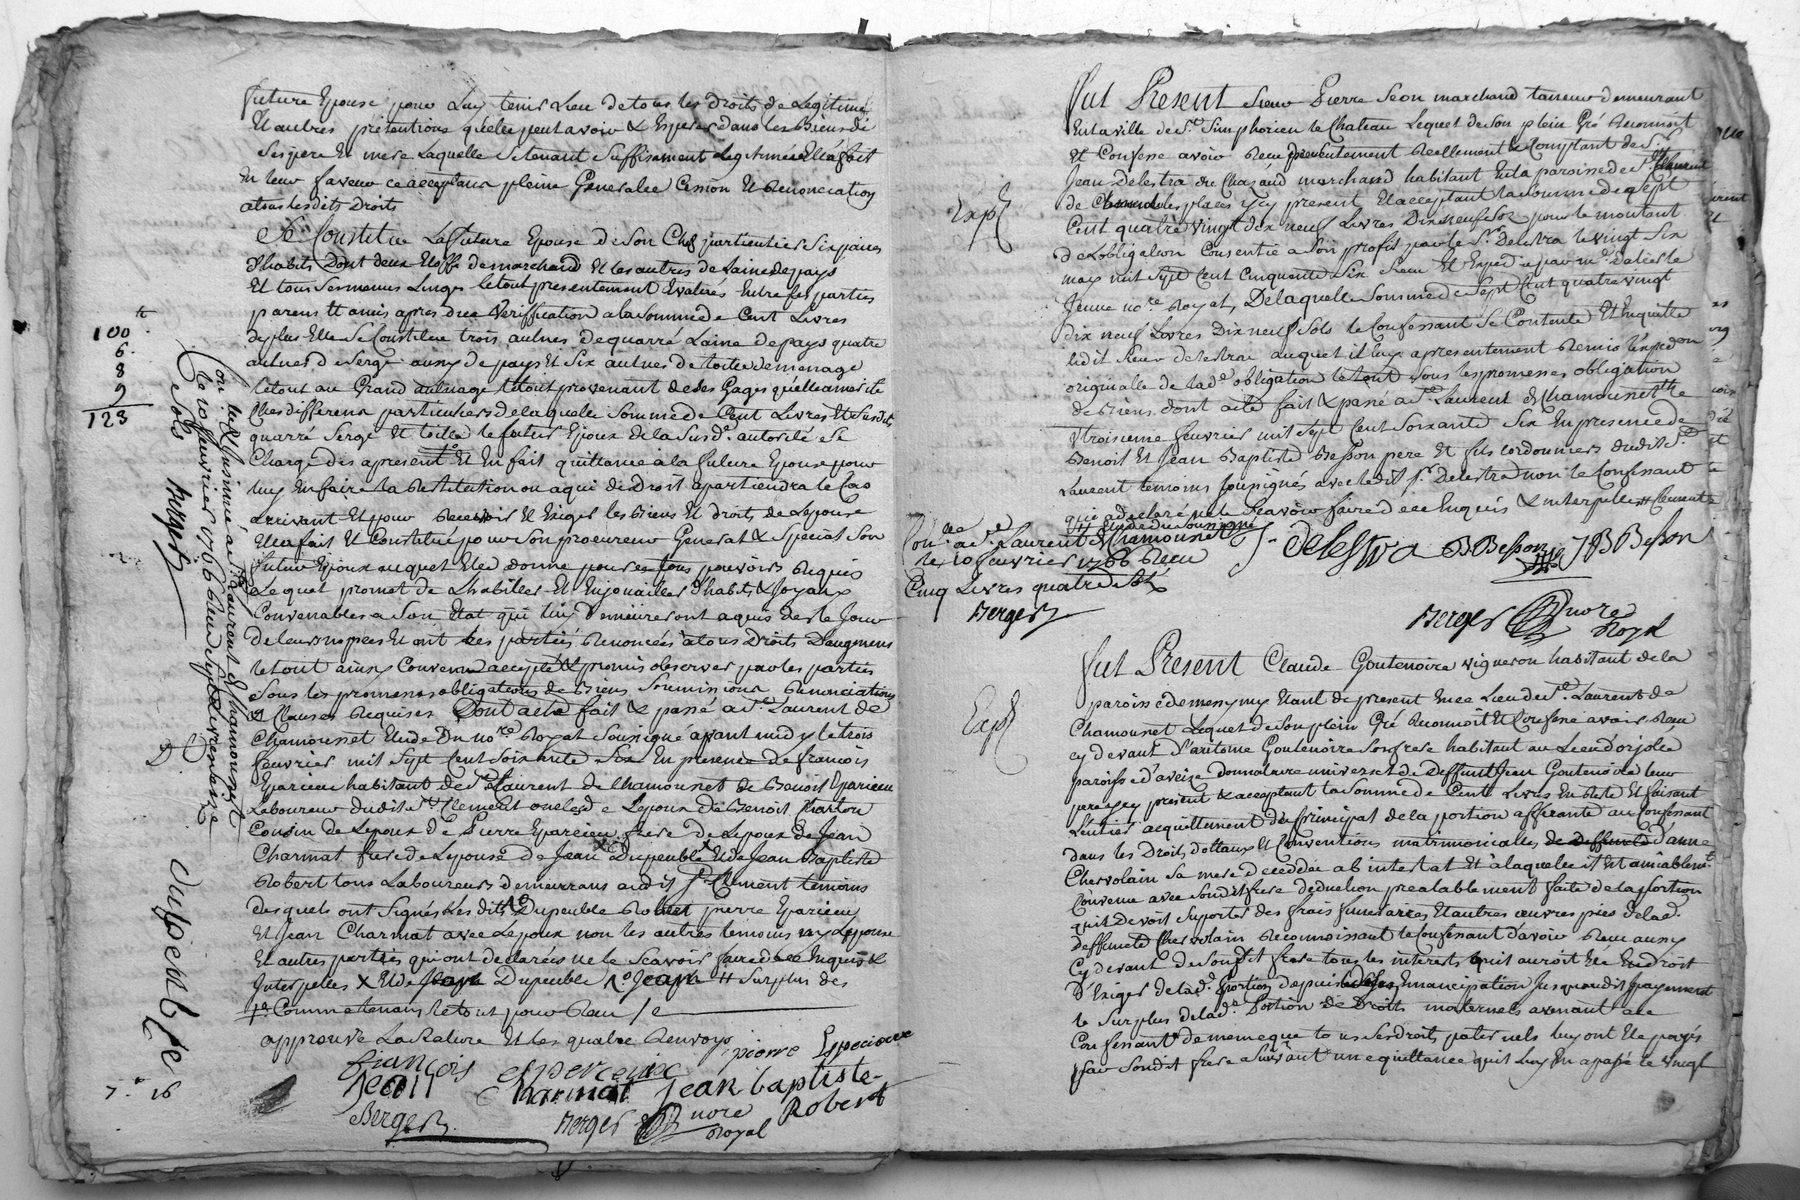 future Epouse pour Luy tenir Lieu de tous les droits de Legitime
Et autres prétentions qu'elle peut avoir & Esperer dans les Biens de
Ses pere Et mere Laquelle Se tenant Suffisament Legitimée Elle fait
En leur faveur ce acceptans pleine Generalle Cession Et Renonciation
a tous lesdits Droits
Se Constitue La future Epouse de Son Chef particulier Six paires
d'habits Dont deux Etoffe de marchand Et les autres de Laine de pays
Et tous Ses menus Linges le tout presentement Evalués Entre les parties
parens Et amis apres due Vériffication a la Somme de Cent Livres
de plus Elle Se Constitue trois aulnes de quarré Laine de pays quatre
aulnes de Serge aussy de pays Et Six aulnes de toille de menage
le tout au Grand aulnage le tout provenant de Ses Gages qu'elle a
Ches differens particuliers de laquelle Somme de Cent Livres Et Susdits
quarré Serge Et toille le futur Epoux de la Susd.e autorité Se
Charge des apresent Et En fait quittance à la future Epouse pour
luy En faire la Restitution ou a qui de Droit apartiendra le Cas
arrivant Et pour Recevoir Et Exiger les Biens Et droits de Lepouse
Elle a fait Et Constitué pour Son procureur General & Special Son
futur Epoux auquel Elle donne pour ce tous pouvoirs Requis
Lequel promet de L'habiller Et Enjouailler d'habits & Joyaux
Convenables a Son Etat qui luy Demeureront aquis des le Jour
de leurs nopces Et ont les parties Renoncées à tous Droits D'augmens
le tout ainsy Convenu accepté & promis observer par les parties
Sous les promesses obligations de Biens Soumissions Renonciations
& Clauses Requises Dont acte fait & passé a St Laurent de
Chamousset Etude Du no.re Royal Sousigné avant midy le trois
fevrier mil Sept Cent Soixante Six En presence de francois
Eparcieu habitant de St Laurent de Chamousset de Benoit Eparcieu
Laboureur dudit St Clement oncles de Lepoux De Benoit Charton
Cousin de Lepoux de Pierre Eparcieu frere de Lepoux de Jean
Charmat frere de Lepouse de Jean Dupeuble & de Jean Baptiste
Robert tous Laboureurs demeurans audit St Clement temoins
Lesquels ont Signés Lesdits Dupeuble Robert pierre Eparcieu
Et Jean Charmat avec Lepoux non les autres temoins ny Lepouse
Et autres parties qui ont declarés ne le Scavoir faire de ce Enquis &
Interpellés X Et de Jean Dupeuble Jean # Surplus des
approuvé La Rature Et les quatre Renvoys
100.
6.
8
9
123
Con.lé & Insinué a St Laurent de Chamousset
le 10 fevrier 1766 Reçu Sept Livres Seize
Sols Berger
Dupeuble
7. 16
françois esparcieu pierre Esparcieu
jean Charmat jean baptiste
Robert
Berger
Berger nore
Royal
Fut Present Sieur Pierre Seon marchand taneur demeurant
En la ville de St Simphorien le Chateau Lequel de Son plein Gré Reconnoit
Et Confesse avoir Reçu presentement Reellement & Comptant de Sr
Jean Delestra du Chazaud marchand habitant En la paroisse de St
de les places Icy present Et acceptant la Somme de Sept
Cent quatre vingt dix neuf Livres Dix neuf Sols pour le montant
de L'obligation Consentie a Son profit par le Sr Delestra le vingt Six
may mil Sept Cent Cinquante Six Reçu Et Expediée par me
Jeune no.re Royal, De laquelle Somme de Sept Cent quatre vingt
dix neuf Livres Dix neuf Sols le Confessant Se Contente Et En quitte
ledit Sieur delestra auquel il luy a presentement Remis l'Exped.on
originalle de lad.e obligation le tout sous les promesses obligation
de Biens dont acte fait & passé a St Laurent de Chamousset le
troisieme fevrier mil Sept Cent Soixante Six En presence de
Benoit Et Jean Baptiste Besson pere Et fils cordonniers dudit St
Laurent temoins Sousignés avec ledit Sr Delestra non le Confessant
qui a declaré ne le Scavoir faire de ce Enquis & interpellé # Clement
# Etude du Sousigné
Expé
Con.lé a St Laurent de Chamousset
le 10 fevrier 1766 Reçu
Cinq Livres quatre Sols
Berger
delestra B Besson JB Besson
Berger nore
Royal
Fut Present Claude Goutenoire vigneron habitant de la
paroisse de messymy Etant de present En ce Lieu de St Laurent de
Chamousset Lequel de Son plein Gré Reconnoit Et Confesse avoir Reçu
cy devant d'antoine Goutenoire Son frere habitant au Lieu d'orjolée
paroisse d'aveize donnataire universel de Deffunt Jean Goutenoire leur
pere Icy present & acceptant la Somme de Cent Livres En Reste Et faisant
L'entier acquittement du principal de la portion afferante au Confessant
dans les Droits dottaux Et Conventions matrimonialles de deffuncte d'anne
Chervolain Sa mere decedée ab intestat Et à laquelle il Est amiablem.t
Convenu avec Sondit frere déduction prealablement faite de la portion
quil Devoit Suporter des frais funeraires Et autres œuvres pies de lad.
deffuncte Chervolain Reconnoissant le Confessant d'avoir Reçu aussy
Cy devant de Sondit frere tous les interets quil auroit Eté En droit
D'Exiger de lad. portion depuis Son Emancipation Jusquaudit payement
le Surplus de lad.e Portion de Droits maternels avenant au
Confessant de meme que tous Ses droits paternels luy ont Eté payés
par Sondit frere Suivant une quittance quil luy En a passé le vingt
Expé